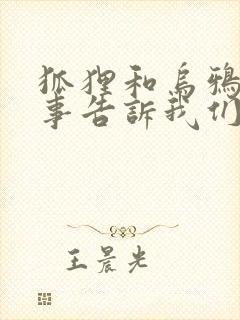 狐狸和烏鴉
事告訴我们
王晨光